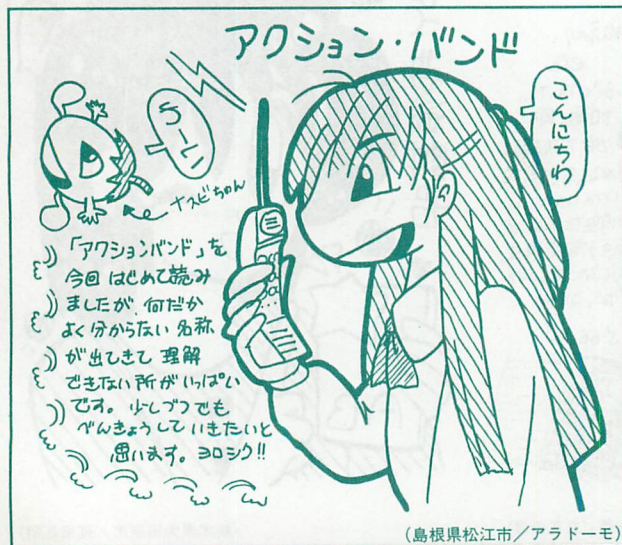 アクション・バンド
こんにちわ
うーい
ナスビちゃん
「アクションバンド」を
今回 はじめて読み
ましたが、何だか
よく分からない 名称
が出てきて 理解
できない 所がいっぱい
です。少しづつでも
べんきょうしていきたいと
思います。ヨロシク!!
(島根県松江市/アラドーモ)